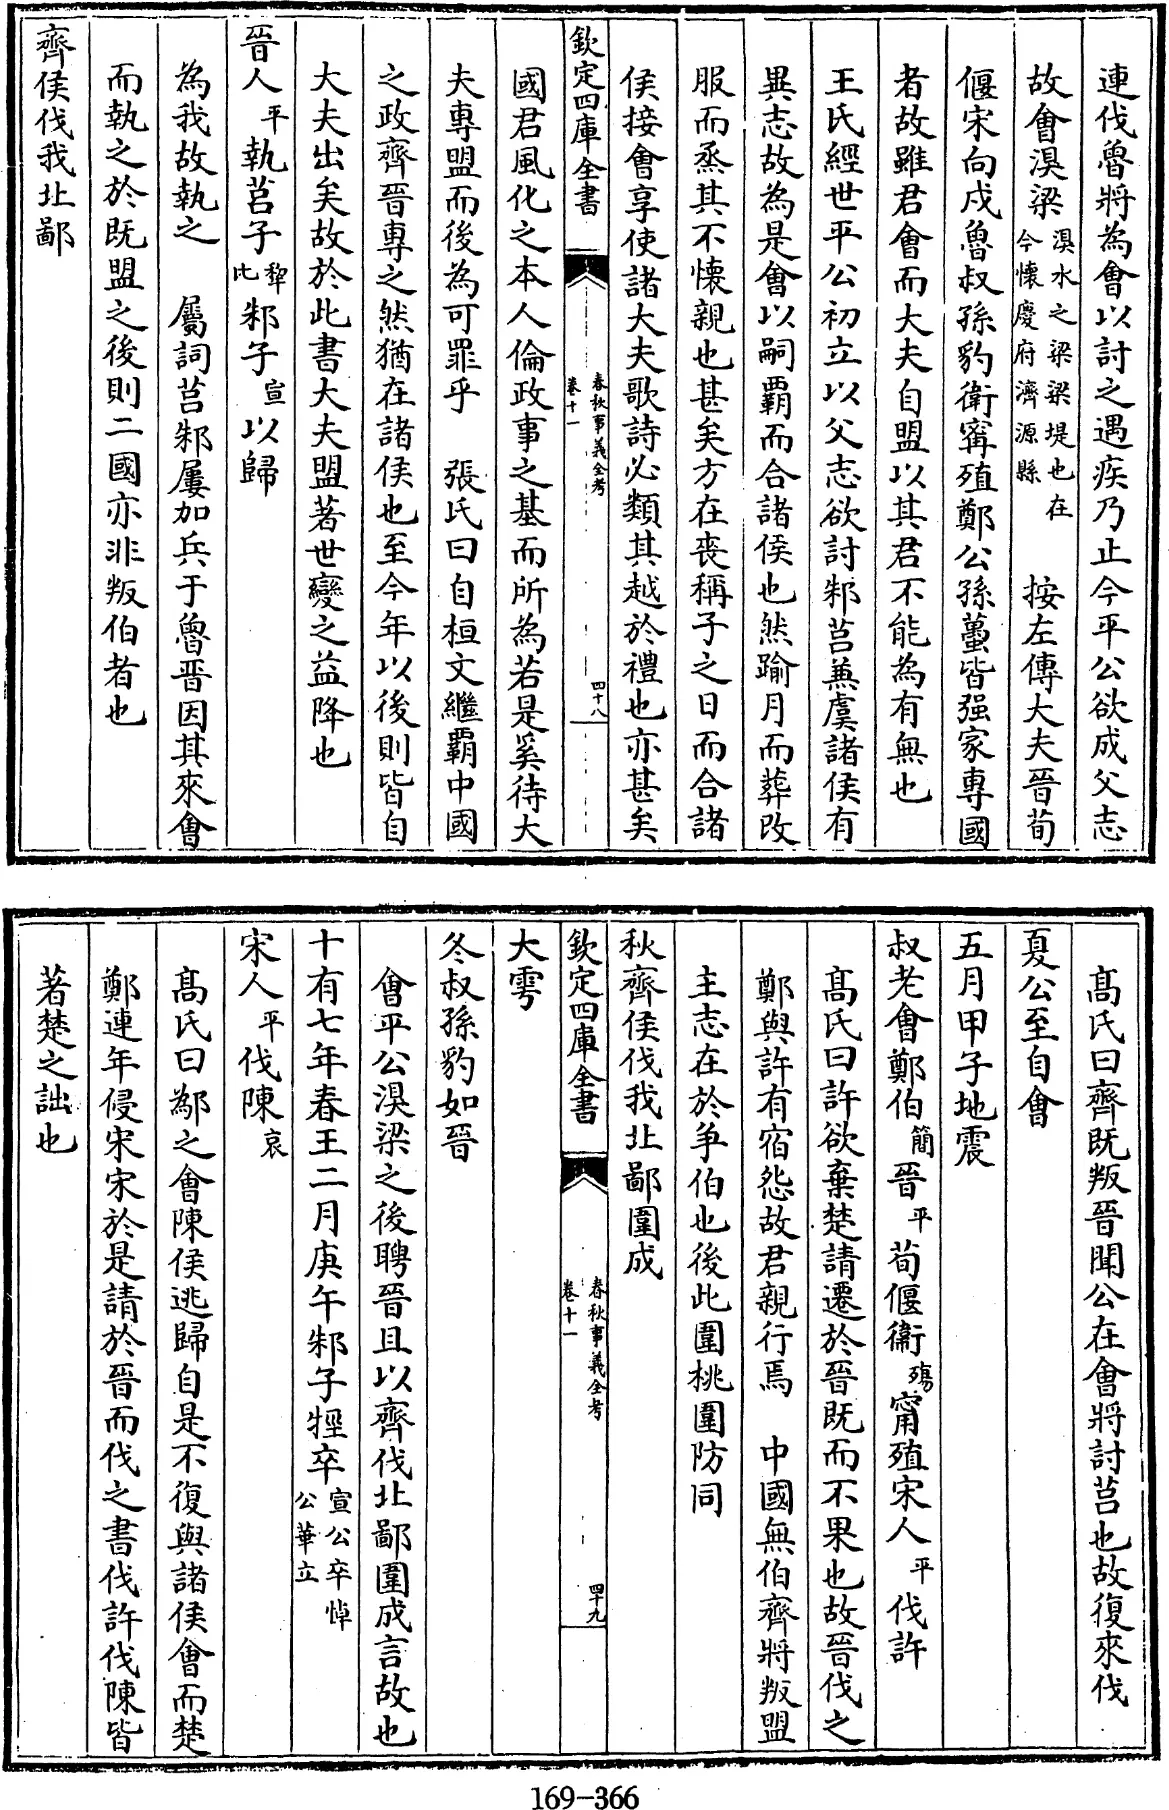 連伐魯將為會以討之遇疾乃止今平公欲成父志
故會湨梁湨水之梁梁堤也在今懷慶府濟源縣　按左傳大夫晉荀
偃宋向戌魯叔孫豹衛甯殖鄭公孫蠆皆强家專國
者故雖君會而大夫自盟以其君不能為有無也
王氏經世平公初立以父志欲討邾莒兼虞諸侯有
異志故為是會以嗣覇而合諸侯也然踰月而葬改
服而烝其不懷親也甚矣方在喪稱子之日而合諸
侯接會享使諸大夫歌詩必類其越於禮也亦甚矣
欽定四庫全書　春秋事義全考　卷十一　四十八
國君風化之本人倫政事之基而所為若是奚待大
夫專盟而後為可罪乎　張氏曰自桓文繼覇中國
之政齊晉專之然猶在諸侯也至今年以後則皆自
大夫出矣故於此書大夫盟著世變之益降也
晉人平執莒子犂比邾子宣以歸
為我故執之　屬詞莒邾屢加兵于魯晋因其來會
而執之於既盟之後則二國亦非叛伯者也
齊侯伐我北鄙
髙氏曰齊既叛晉聞公在會將討莒也故復來伐
夏公至自會
五月甲子地震
叔老會鄭伯簡晉平荀偃衛殤甯殖宋人平伐許
髙氏曰許欲棄楚請遷於晉既而不果也故晉伐之
鄭與許有宿怨故君親行焉　中國無伯齊將叛盟
主志在於争伯也後此圍桃圍防同
秋齊侯伐我北鄙圍成
欽定四庫全書　春秋事義全考　卷十一　四十九
大雩
冬叔孫豹如晉
會平公湨梁之後聘晉且以齊伐北鄙圍成言故也
十有七年春王二月庚午邾子牼卒宣公卒悼公華立
宋人平伐陳哀
髙氏曰鄬之會陳侯逃歸自是不復與諸侯會而楚
鄭連年侵宋宋於是請於晉而伐之書伐許伐陳皆
著楚之詘也
169-366